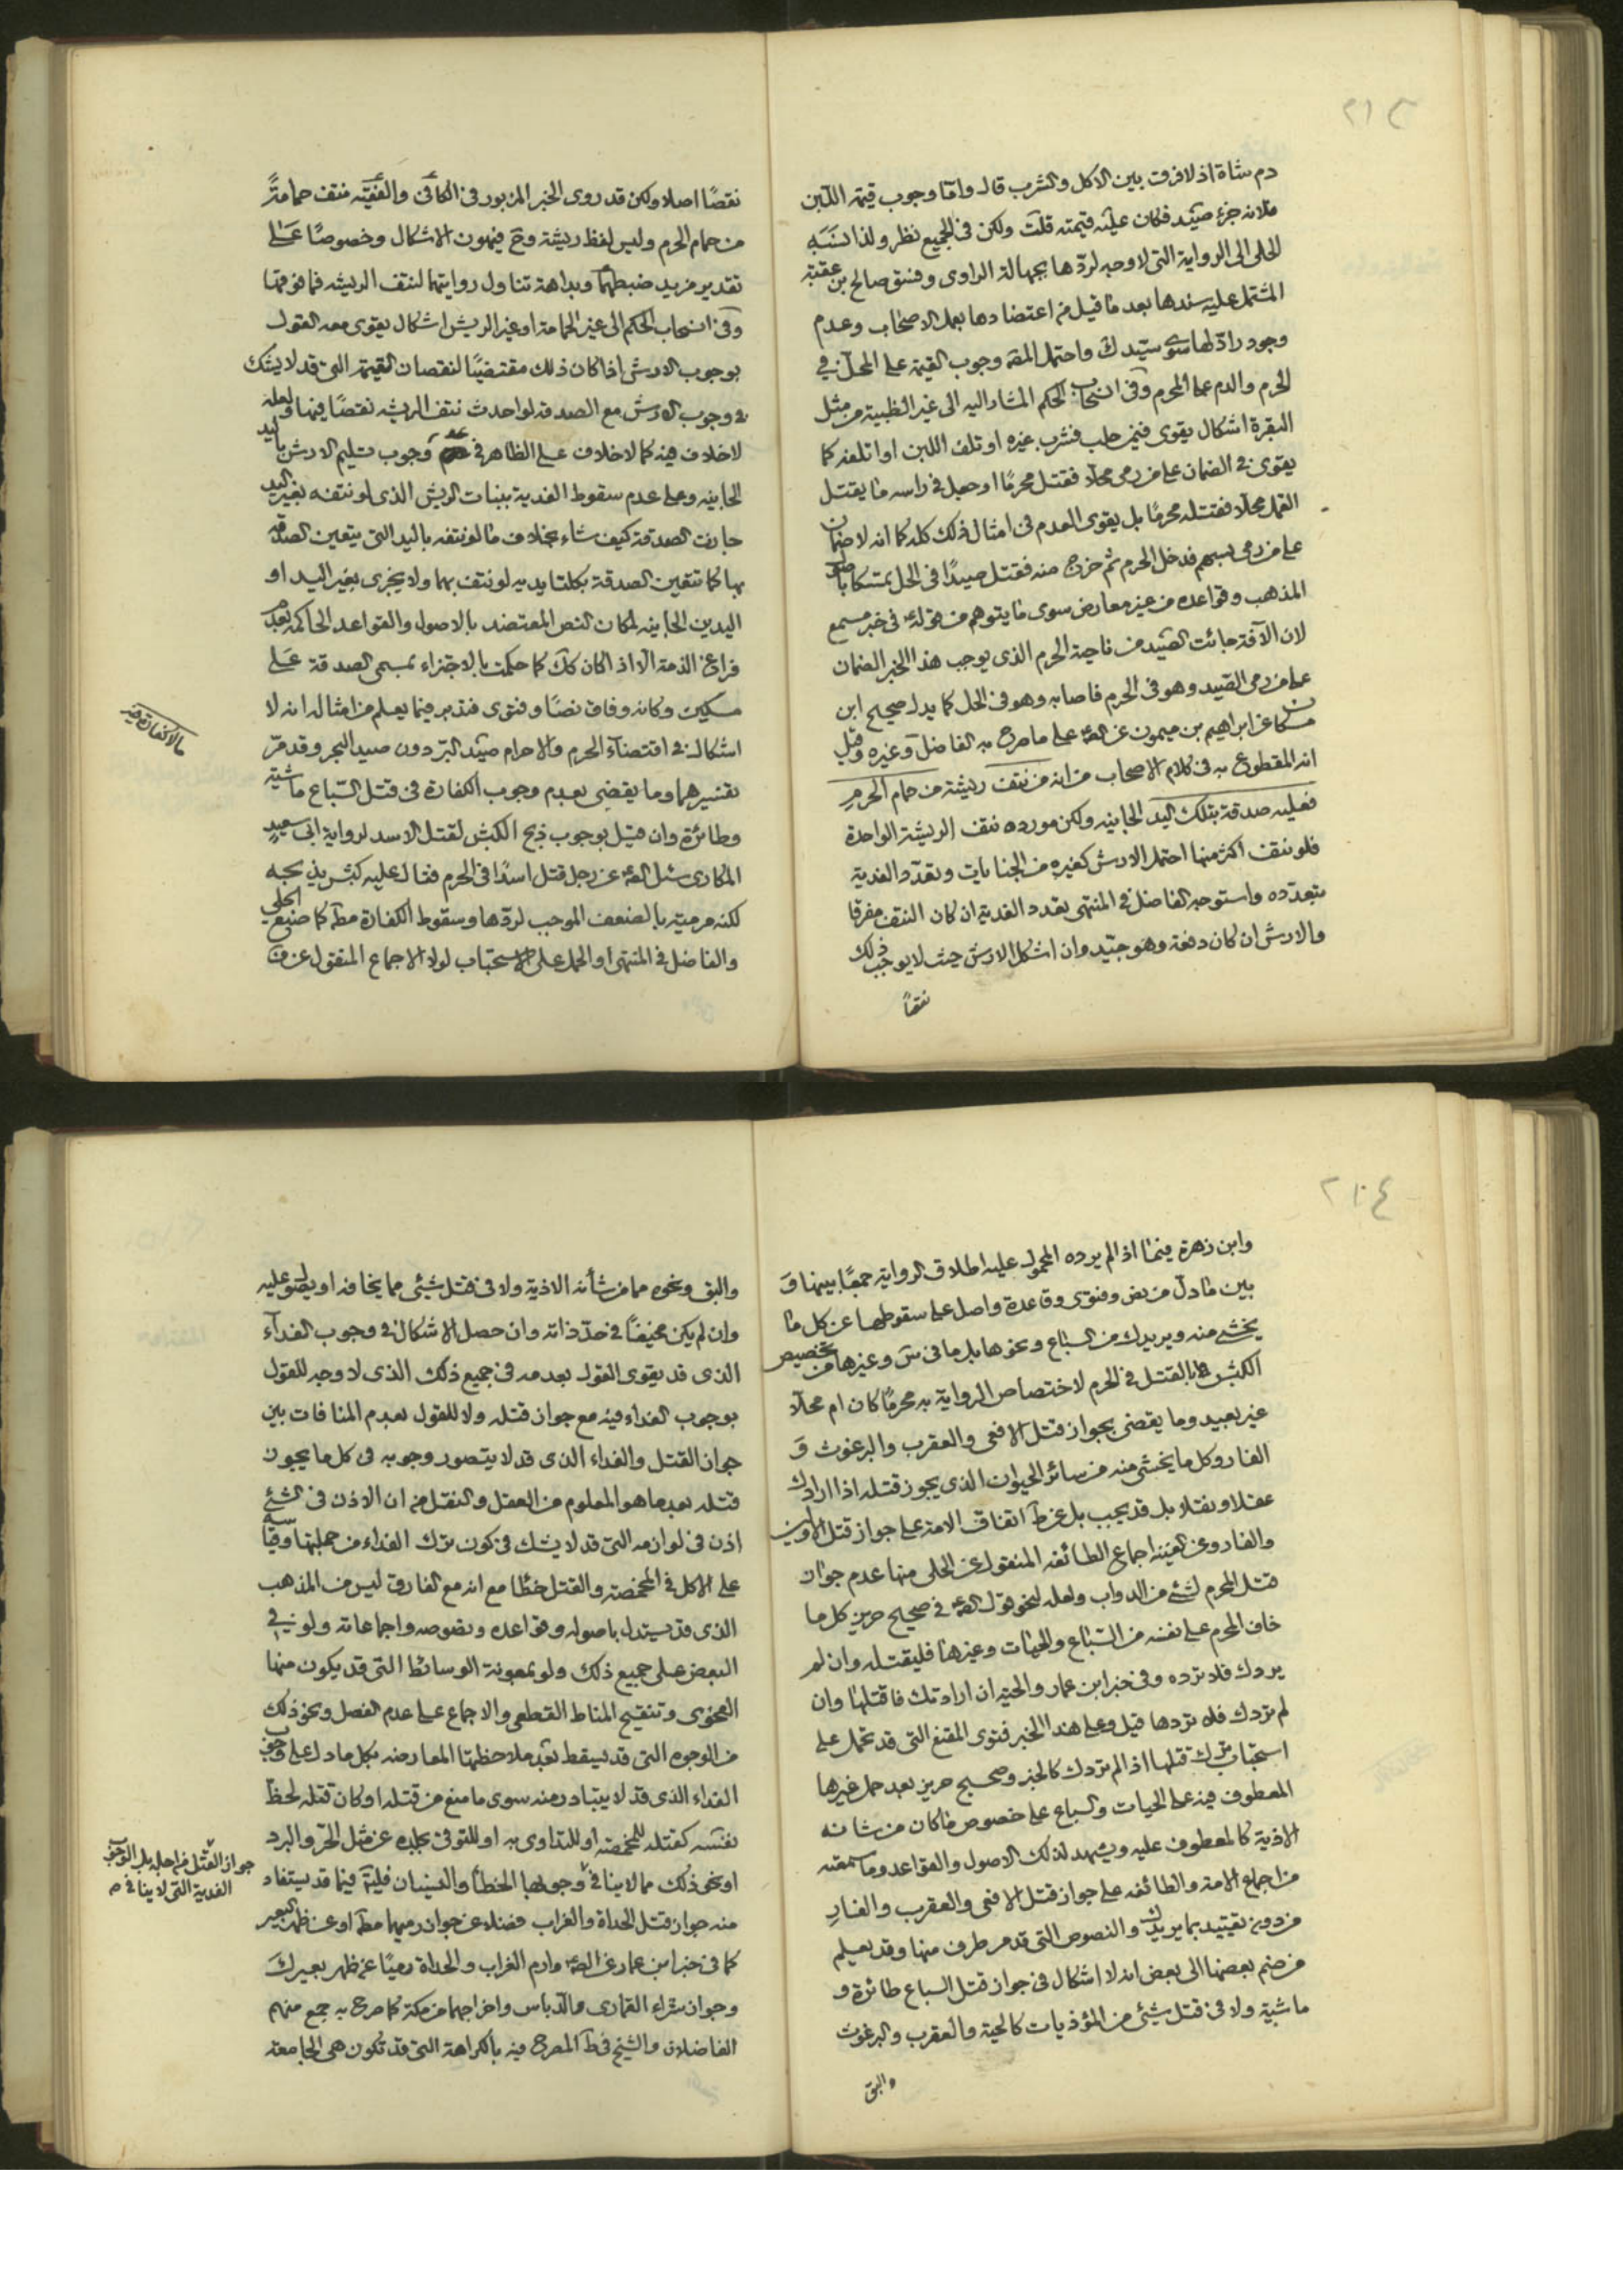 ٢١٣
دم شاة اذ لا فرق بين الاكل والشرب قال واما وجوب قيمة اللبن
فلانه جزء صيد فكان عليه قيمته قلت ولكن في الجميع نظر ولذا نسبه
الحلى الى الرواية التى لا وجه لردّها بجهالة الراوى وفسق صالح بن عقبة
المشتمل عليه سندها بعد ما قيل من اعتضادها بعمل الاصحاب وعدم
وجود رادّ لها سوى سيّدك واحتمل المقه وجوب القيمة على المحلّ في
الحرم والدم على المحرم وفى انسحاب الحكم المشار اليه الى غير الظبية من مثل
البقرة اشكال يقوى فيمن حلب فشرب غيره او تلف اللبن او اتلفه كما
يقوى في الضمان على من رمى محلّا فقتل محرمًا او جعل في راسه ما يقتل
القمل محلّا فقتله محرمًا بل يقوى العدم فى امثال ذلك كله كما انه لا ضمان
على من رمى بسهم فدخل الحرم ثم خرج منه فقتل صيدًا فى الحل تمسّكا باصول
المذهب وقواعده من غير معارض سوى ما يتوهم من قوله في خبر مسمع
لان الآفة جائت الصيد من ناحية الحرم الذى يوجب هذا الخبر الضمان
على من رمى الصيد وهو فى الحرم فاصابه وهو فى الحل كما يدل صحيح ابن
مسكان عن ابراهيم بن ميمون عن الصّ على ما صرح به الفاضل وغيره وقيل
انه المقطوع به فى كلام الاصحاب من انه من نتف ريشة من حمام الحرم
فعليه صدقة بتلك اليد الجانيه ولكن مورده نتف الريشة الواحدة
فلو نتف اكثر منها احتمل الارش كغيره من الجنايات وتعدّد الفدية
بتعدّده واستوجه الفاضل في المنتهى تعدد الفدية ان كان النتف مفرقا
والارش ان كان دفعة وهو جيّد وان اشكل الارش حيث لا يوجب ذلك
نقصًا
نقصًا اصلا ولكن قد روى الخبر المزبور في الكافى والفقيه نتف حمامةً
من حمام الحرم وليس لفظ ريشة وح فيهون الاشكال وخصوصًا على
تقدير مزيد ضبطهما وبداهة تناول روايتهما لنتف الريشه فما فوقها
وفى انسحاب الحكم الى غير الحمامة او غير الريش اشكال يقوى معه القول
بوجوب الارش اذا كان ذلك مقتضيًا لنقصان القيمة التى قد لا يشك
في وجوب الارش مع الصدقه لو احدث نتف الريشه نقصًا فيها ولعله
لا خلاف فيه كما لا خلاف على الظاهر في عدم وجوب تسليم الارش باليد
الجانيه وعلى عدم سقوط الفدية بنبات الريش الذى لو نتفه بغير اليد
جازت الصدقة كيف شاء بخلاف ما لو نتفه باليد التى يتعين الصدقة
بها كما تتعين الصدقة بكلتا يديه لو نتف بهما ولا يجزى بغير اليد او
اليدين الجانيه لمكان النص المعتضد بالاصول والقواعد الحاكمه بعدم
فراغ الذمة الا اذ اكان كك كما حكمت بالاجتزاء بمسمى الصدقة على
مسكين وكانه وفاق نصًا وفتوى فتدبر فيما يعلم من امثاله انه لا
اشكال في اقتضاء الحرم والاحرام صيد البرّ دون صيد البحر وقد مرّ
مالا كفارة فيه
تفسيرهما وما يقضى بعدم وجوب الكفارة فى قتل السّباع ماشية
وطائرة وان قيل بوجوب ذبح الكبش لقتل الاسد لرواية ابى سعيد
المكارى سئل الصّ عن رجل قتل اسدًا فى الحرم فقال عليه كبش يذبحه
لكنه مرميّه بالضعف الموجب لردّها وسقوط الكفارة مطّ كما صنع الحلى
والفاضل في المنتهى او الحمل على الاستحباب لولا الاجماع المنقول عن ف
٢١٤
وابن زهرة فيما اذا لم يرده المحمول عليه اطلاق الرواية جمعًا بينها و
بين ما دلّ من نص وفتوى وقاعدة واصل على سقوطها عن كل ما
يخشى منه ويريدك من السباع ونحوها بل ما فى س وغيرها من تخصيص
الكبش بالقتل في الحرم لاختصاص الرواية به محرمًا كان ام محلّا
غير بعيد وما يقضى بجواز قتل الافعى والعقرب والبرغوث و
الفار وكل ما يخشى منه من سائر الحيوان الذى يجوز قتله اذا ارادك
عقلا ونقلا بل قد يجب بل عن ط اتفاق الامة على جواز قتل الاولين
والفار وعن الغنيه اجماع الطائفه المنقول عن الحلى منها عدم جواز
قتل المحرم لشئ من الدواب ولعله لنحو قول الصّ في صحيح حريز كل ما
خاف المحرم على نفسه من السّباع والحيّات وغيرها فليقتله وان لم
يردك فلا ترده وفى خبر ابن عمار والحيّه ان ارادتك فاقتلها وان
لم تردك فلا تردها قيل وعلى هذا الخبر فتوى المقنع التى قد تحمل على
استحباب ترك قتلها اذا لم تردك كالخبر وصحيح حريز بعد حمل غيرها
المعطوف فيه على الحيات والسباع على خصوص ما كان من شانه
الاذيّة كالمعطوف عليه ويشهد لذلك الاصول والقواعد وما سمعته
من اجماع الامة والطائفه على جواز قتل الافعى والعقرب والفار
من دون تقييد بما يريدك والنصوص التى قد مر طرف منها وقد يعلم
من ضم بعضها الى بعض انه لا اشكال فى جواز قتل السباع طائرة و
ماشية ولا فى قتل شيئ من المؤذيات كالحية والعقرب والبرغوث
والبق
والبق ونحوه مما من شأنه الاذية ولا فى قتل شيئ مما يخافه او يصول عليه
وان لم يكن مخيفًا في حدّ ذاته وان حصل الاشكال في وجوب الفداء
الذى قد يقوى القول بعدمه فى جميع ذلك الذى لا وجه للقول
بوجوب الفداء فيه مع جواز قتله ولا للقول بعدم المنافات بين
جواز القتل والفداء الذى قد لا يتصور وجوبه فى كل ما يجوز
قتله بعد ما هو المعلوم من العقل والنقل من ان الاذن فى الشئ
اذن فى لوازمه التى قد لا يشك فى كون ترك الفداء من جملتها وقياسه
على الاكل في المخمصة والقتل خطًا مع انه مع الفارق ليس من المذهب
الذى قد يستدل باصوله وقواعده ونصوصه واجماعاته ولو في
البعض على جميع ذلك ولو بمعونة الوسائط التى قد يكون منها
الفحوى وتنقيح المناط القطعى والاجماع على عدم الفصل ونحو ذلك
من الوجوه التى قد يسقط بعد ملاحظتها المعارضه بكل ما دل على وجوب
الفداء الذى قد لا يتبادر منه سوى ما منع من قتله او كان قتله لحظّ
نفسه كقتله للمخمصه او للتداوى به او للتوقى بجلده عن مثل الحرّ والبرد
او نحو ذلك مما لا ينافى وجوبها الخطأ والنسيان فليتّ فيما قد يستفاد
جواز القتل من اجله بل الوجوب
الفدية التى لا ينافى م
منه جواز قتل الحداة والغراب فضلا عن جواز رميهما مطّ او عن ظهر البعير
كما فى خبر ابن عمار عن الصّ وارم الغراب والحداة رميًا عن ظهر بعيرك
وجواز شراء القمارى والدّباس واخراجهما من مكة كما صرح به جمع منهم
الفاضلان والشيخ فى ط المصرح فيه بالكراهة التى قد تكون هى الجامعة